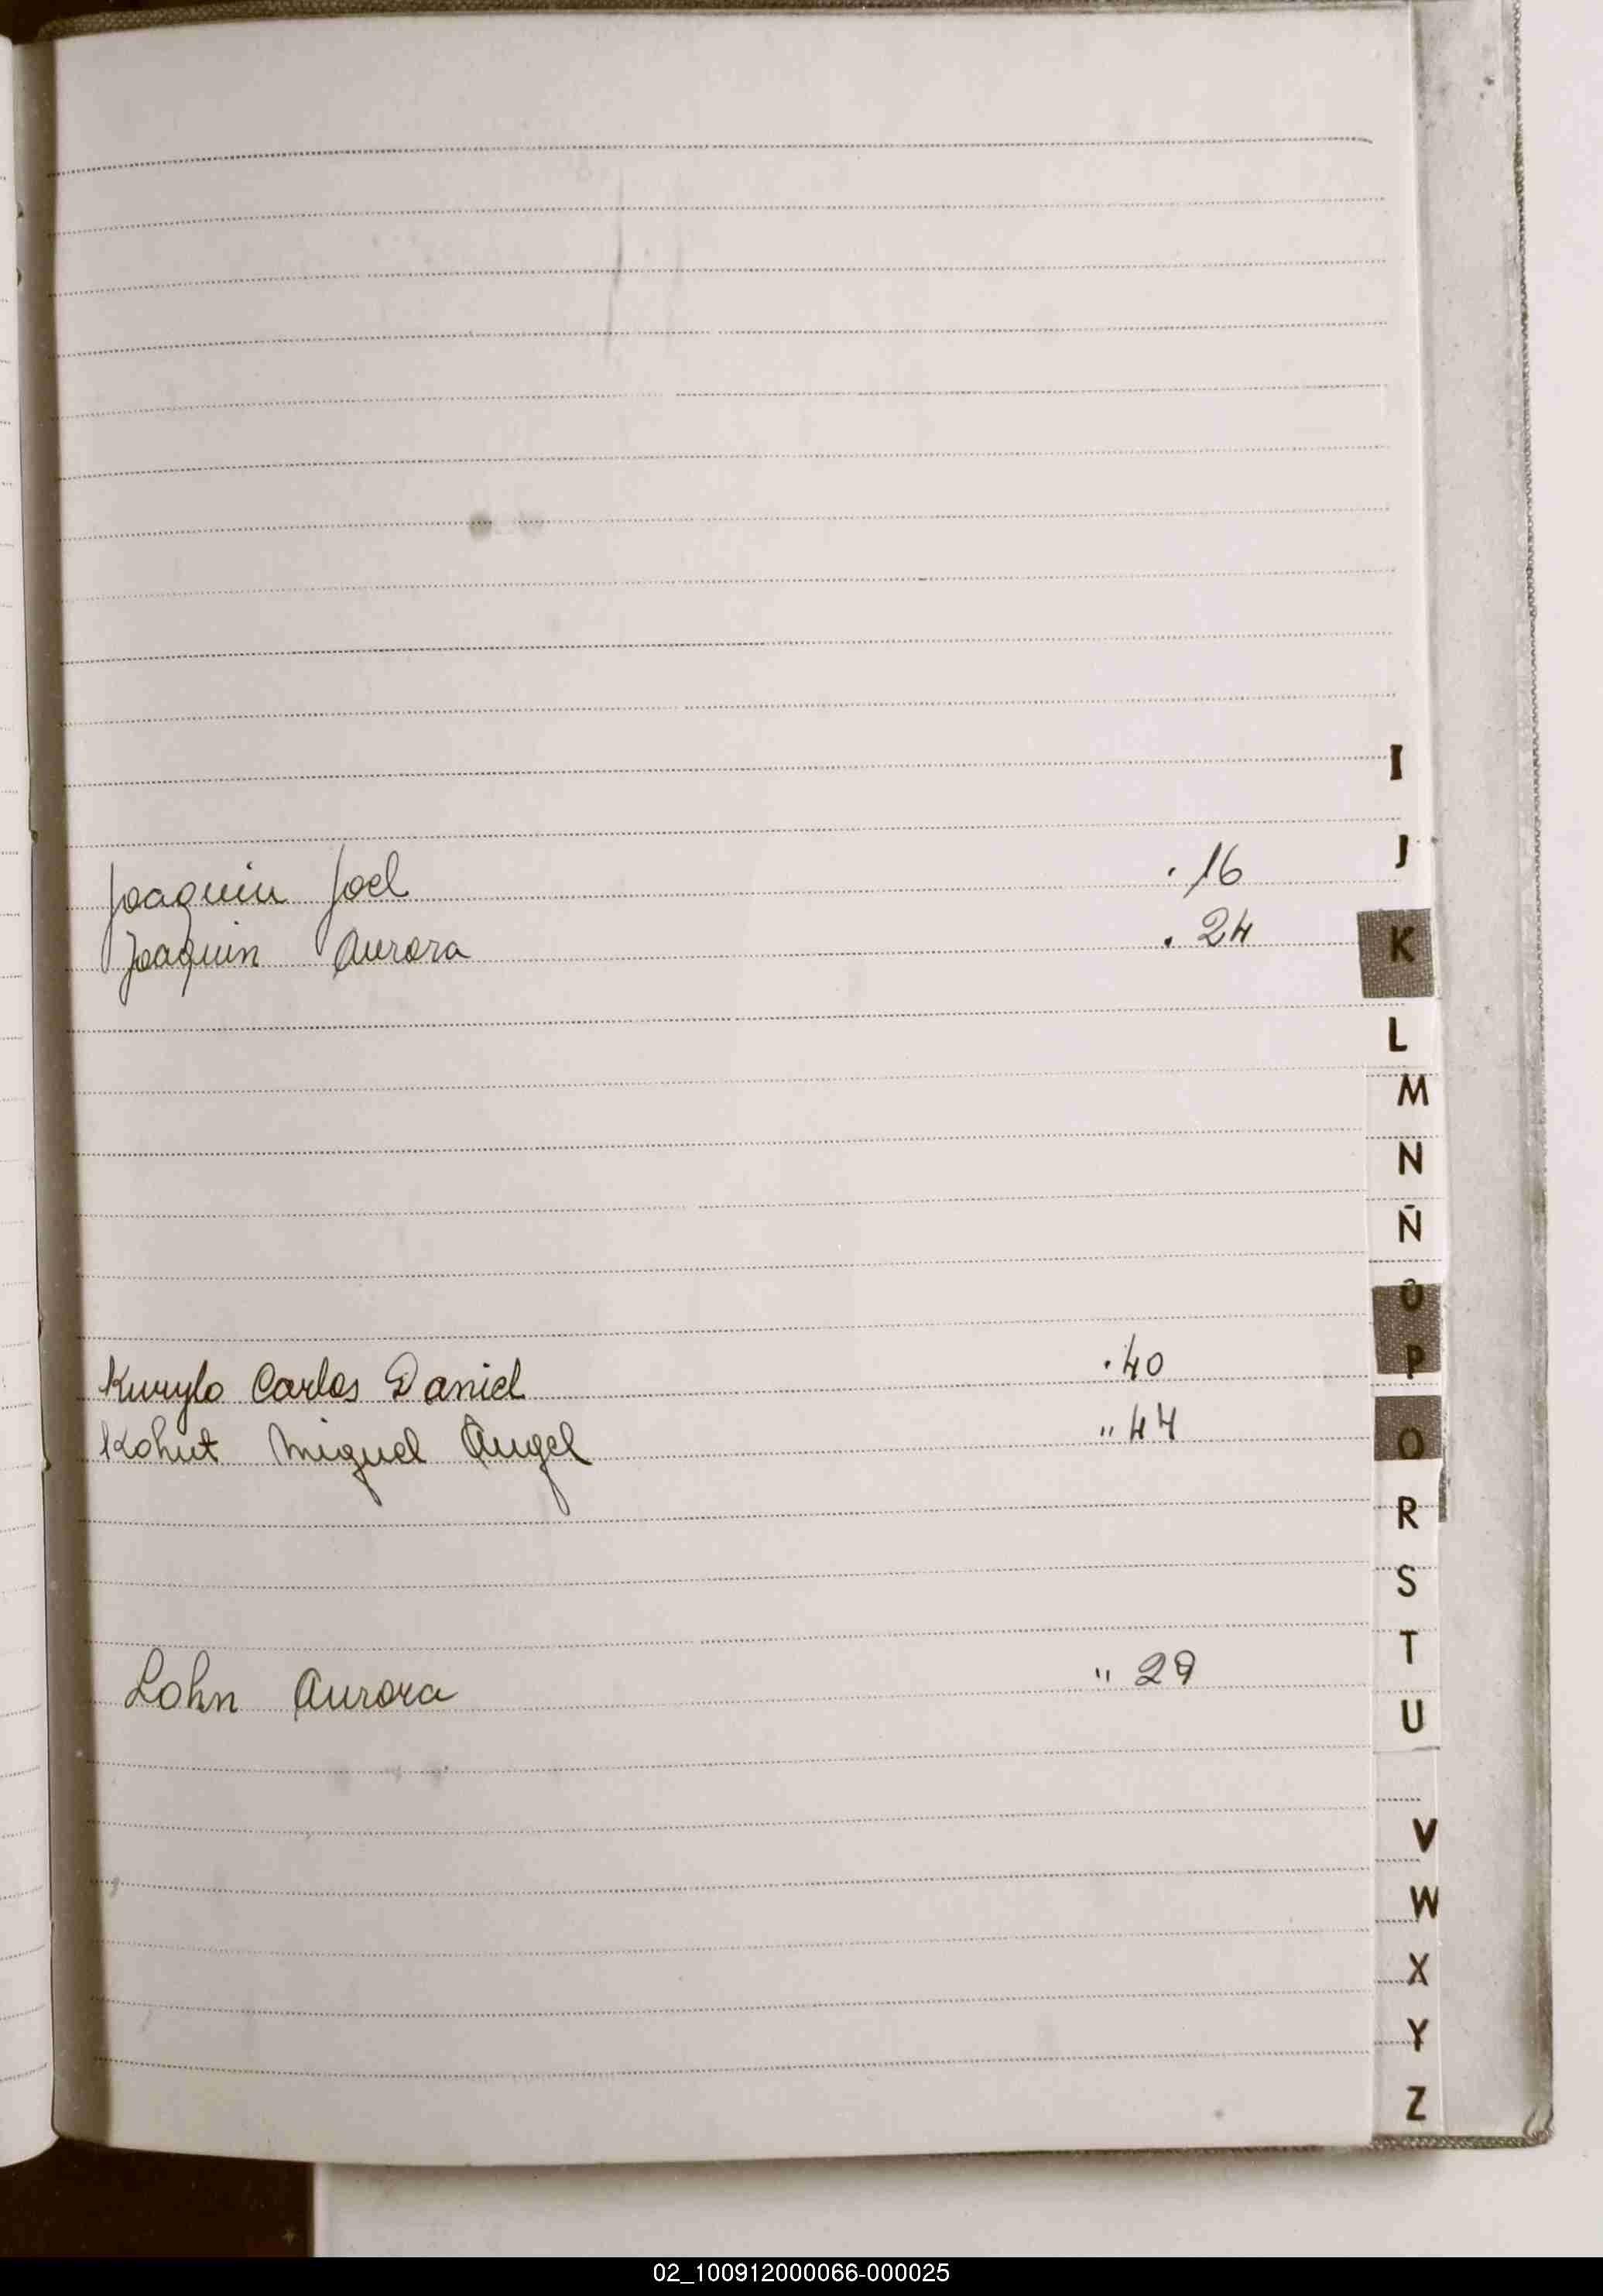 I
J
Joaquin Joel . 16
Joaquin Aurora . 24
K
L
M
N
Ñ
O
Kurylo Carlos Daniel . 40
P
Kohut Miguel Angel " 44
Q
R
S
T
Lohn Aurora " 29
U
V
W
X
Y
Z
02_100912000066-000025